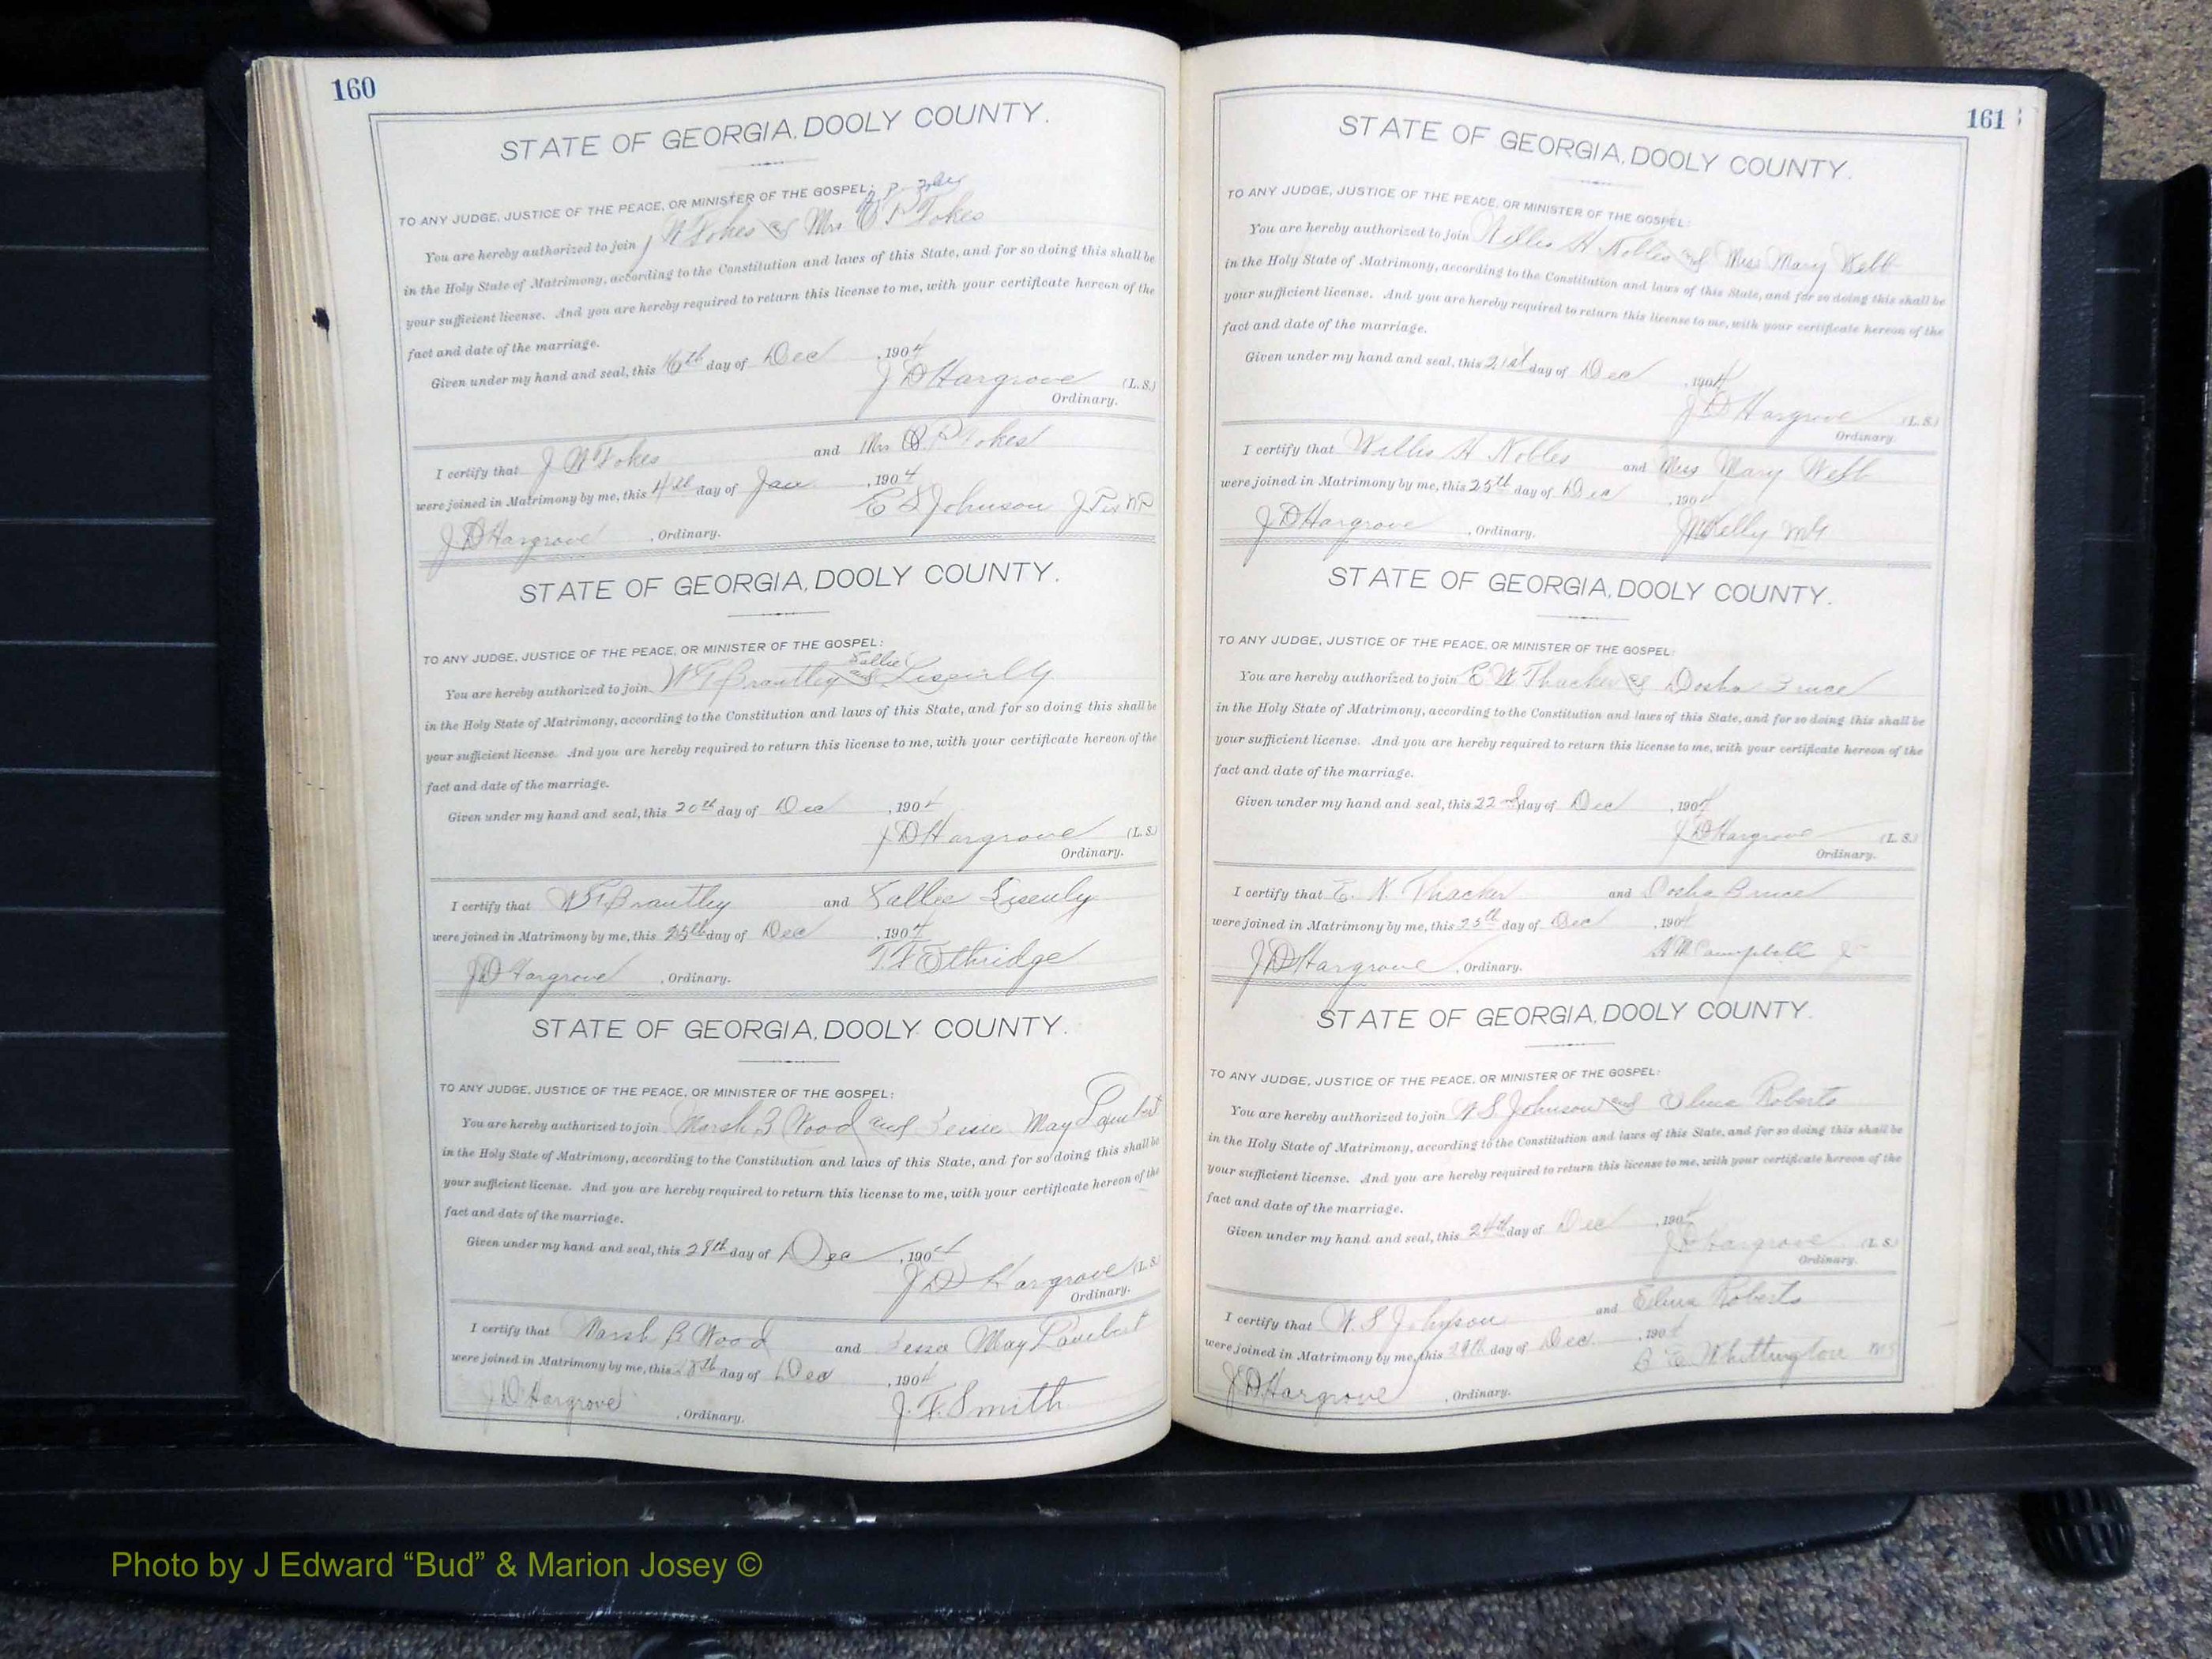 160
STATE OF GEORGIA, DOOLY COUNTY.
TO ANY JUDGE, JUSTICE OF THE PEACE, OR MINISTER OF THE GOSPEL:
You are hereby authorized to join J W Fokes & Mrs P Fokes
in the Holy State of Matrimony, according to the Constitution and laws of this State, and for so doing this shall be
your sufficient license. And you are hereby required to return this license to me, with your certificate hereon of the
fact and date of the marriage.
Given under my hand and seal, this 16th day of Dec , 1904
J D Hargrove (L.S.)
Ordinary.
I certify that J W Fokes and Mrs P Fokes
were joined in Matrimony by me, this 4th day of Jan , 1904
E S Johnson
J D Hargrove , Ordinary.
STATE OF GEORGIA, DOOLY COUNTY.
TO ANY JUDGE, JUSTICE OF THE PEACE, OR MINISTER OF THE GOSPEL:
Sallie
You are hereby authorized to join Brantley and
in the Holy State of Matrimony, according to the Constitution and laws of this State, and for so doing this shall be
your sufficient license. And you are hereby required to return this license to me, with your certificate hereon of the
fact and date of the marriage.
Given under my hand and seal, this 20th day of Dec , 1904
J D Hargrove (L.S.)
Ordinary.
I certify that Brantley and Sallie Lisenly
were joined in Matrimony by me, this 25th day of Dec , 1904
T F Ethridge
J D Hargrove , Ordinary.
STATE OF GEORGIA, DOOLY COUNTY.
TO ANY JUDGE, JUSTICE OF THE PEACE, OR MINISTER OF THE GOSPEL:
You are hereby authorized to join Marsh B Wood and Jessie May Lambert
in the Holy State of Matrimony, according to the Constitution and laws of this State, and for so doing this shall be
your sufficient license. And you are hereby required to return this license to me, with your certificate hereon of the
fact and date of the marriage.
Given under my hand and seal, this day of Dec , 1904
J D Hargrove (L.S.)
Ordinary.
I certify that Marsh B Wood and Jessie May Lambert
were joined in Matrimony by me, this day of Dec , 1904
J. F. Smith
J D Hargrove , Ordinary.
161
STATE OF GEORGIA, DOOLY COUNTY.
TO ANY JUDGE, JUSTICE OF THE PEACE, OR MINISTER OF THE GOSPEL:
You are hereby authorized to join Willis H Nobles and Miss Mary Webb
in the Holy State of Matrimony, according to the Constitution and laws of this State, and for so doing this shall be
your sufficient license. And you are hereby required to return this license to me, with your certificate hereon of the
fact and date of the marriage.
Given under my hand and seal, this 21st day of Dec , 1904
J D Hargrove (L.S.)
Ordinary.
I certify that Willis H Nobles and Miss Mary Webb
were joined in Matrimony by me, this 25th day of Dec , 1904
J M Kelly MG
J D Hargrove , Ordinary.
STATE OF GEORGIA, DOOLY COUNTY.
TO ANY JUDGE, JUSTICE OF THE PEACE, OR MINISTER OF THE GOSPEL:
You are hereby authorized to join E W Thacker & Dosha Bruce
in the Holy State of Matrimony, according to the Constitution and laws of this State, and for so doing this shall be
your sufficient license. And you are hereby required to return this license to me, with your certificate hereon of the
fact and date of the marriage.
Given under my hand and seal, this 22nd day of Dec , 1904
J D Hargrove (L.S.)
Ordinary.
I certify that E. W. Thacker and Dosha Bruce
were joined in Matrimony by me, this 25th day of Dec , 1904
Campbell
J D Hargrove , Ordinary.
STATE OF GEORGIA, DOOLY COUNTY.
TO ANY JUDGE, JUSTICE OF THE PEACE, OR MINISTER OF THE GOSPEL:
You are hereby authorized to join W S Johnson and Elma Roberts
in the Holy State of Matrimony, according to the Constitution and laws of this State, and for so doing this shall be
your sufficient license. And you are hereby required to return this license to me, with your certificate hereon of the
fact and date of the marriage.
Given under my hand and seal, this 24th day of Dec , 1904
J D Hargrove (L.S.)
Ordinary.
I certify that W. S Johnson and Elma Roberts
were joined in Matrimony by me, this day of Dec. , 1904
Whittington MG
J D Hargrove , Ordinary.
Photo by J Edward “Bud” & Marion Josey ©